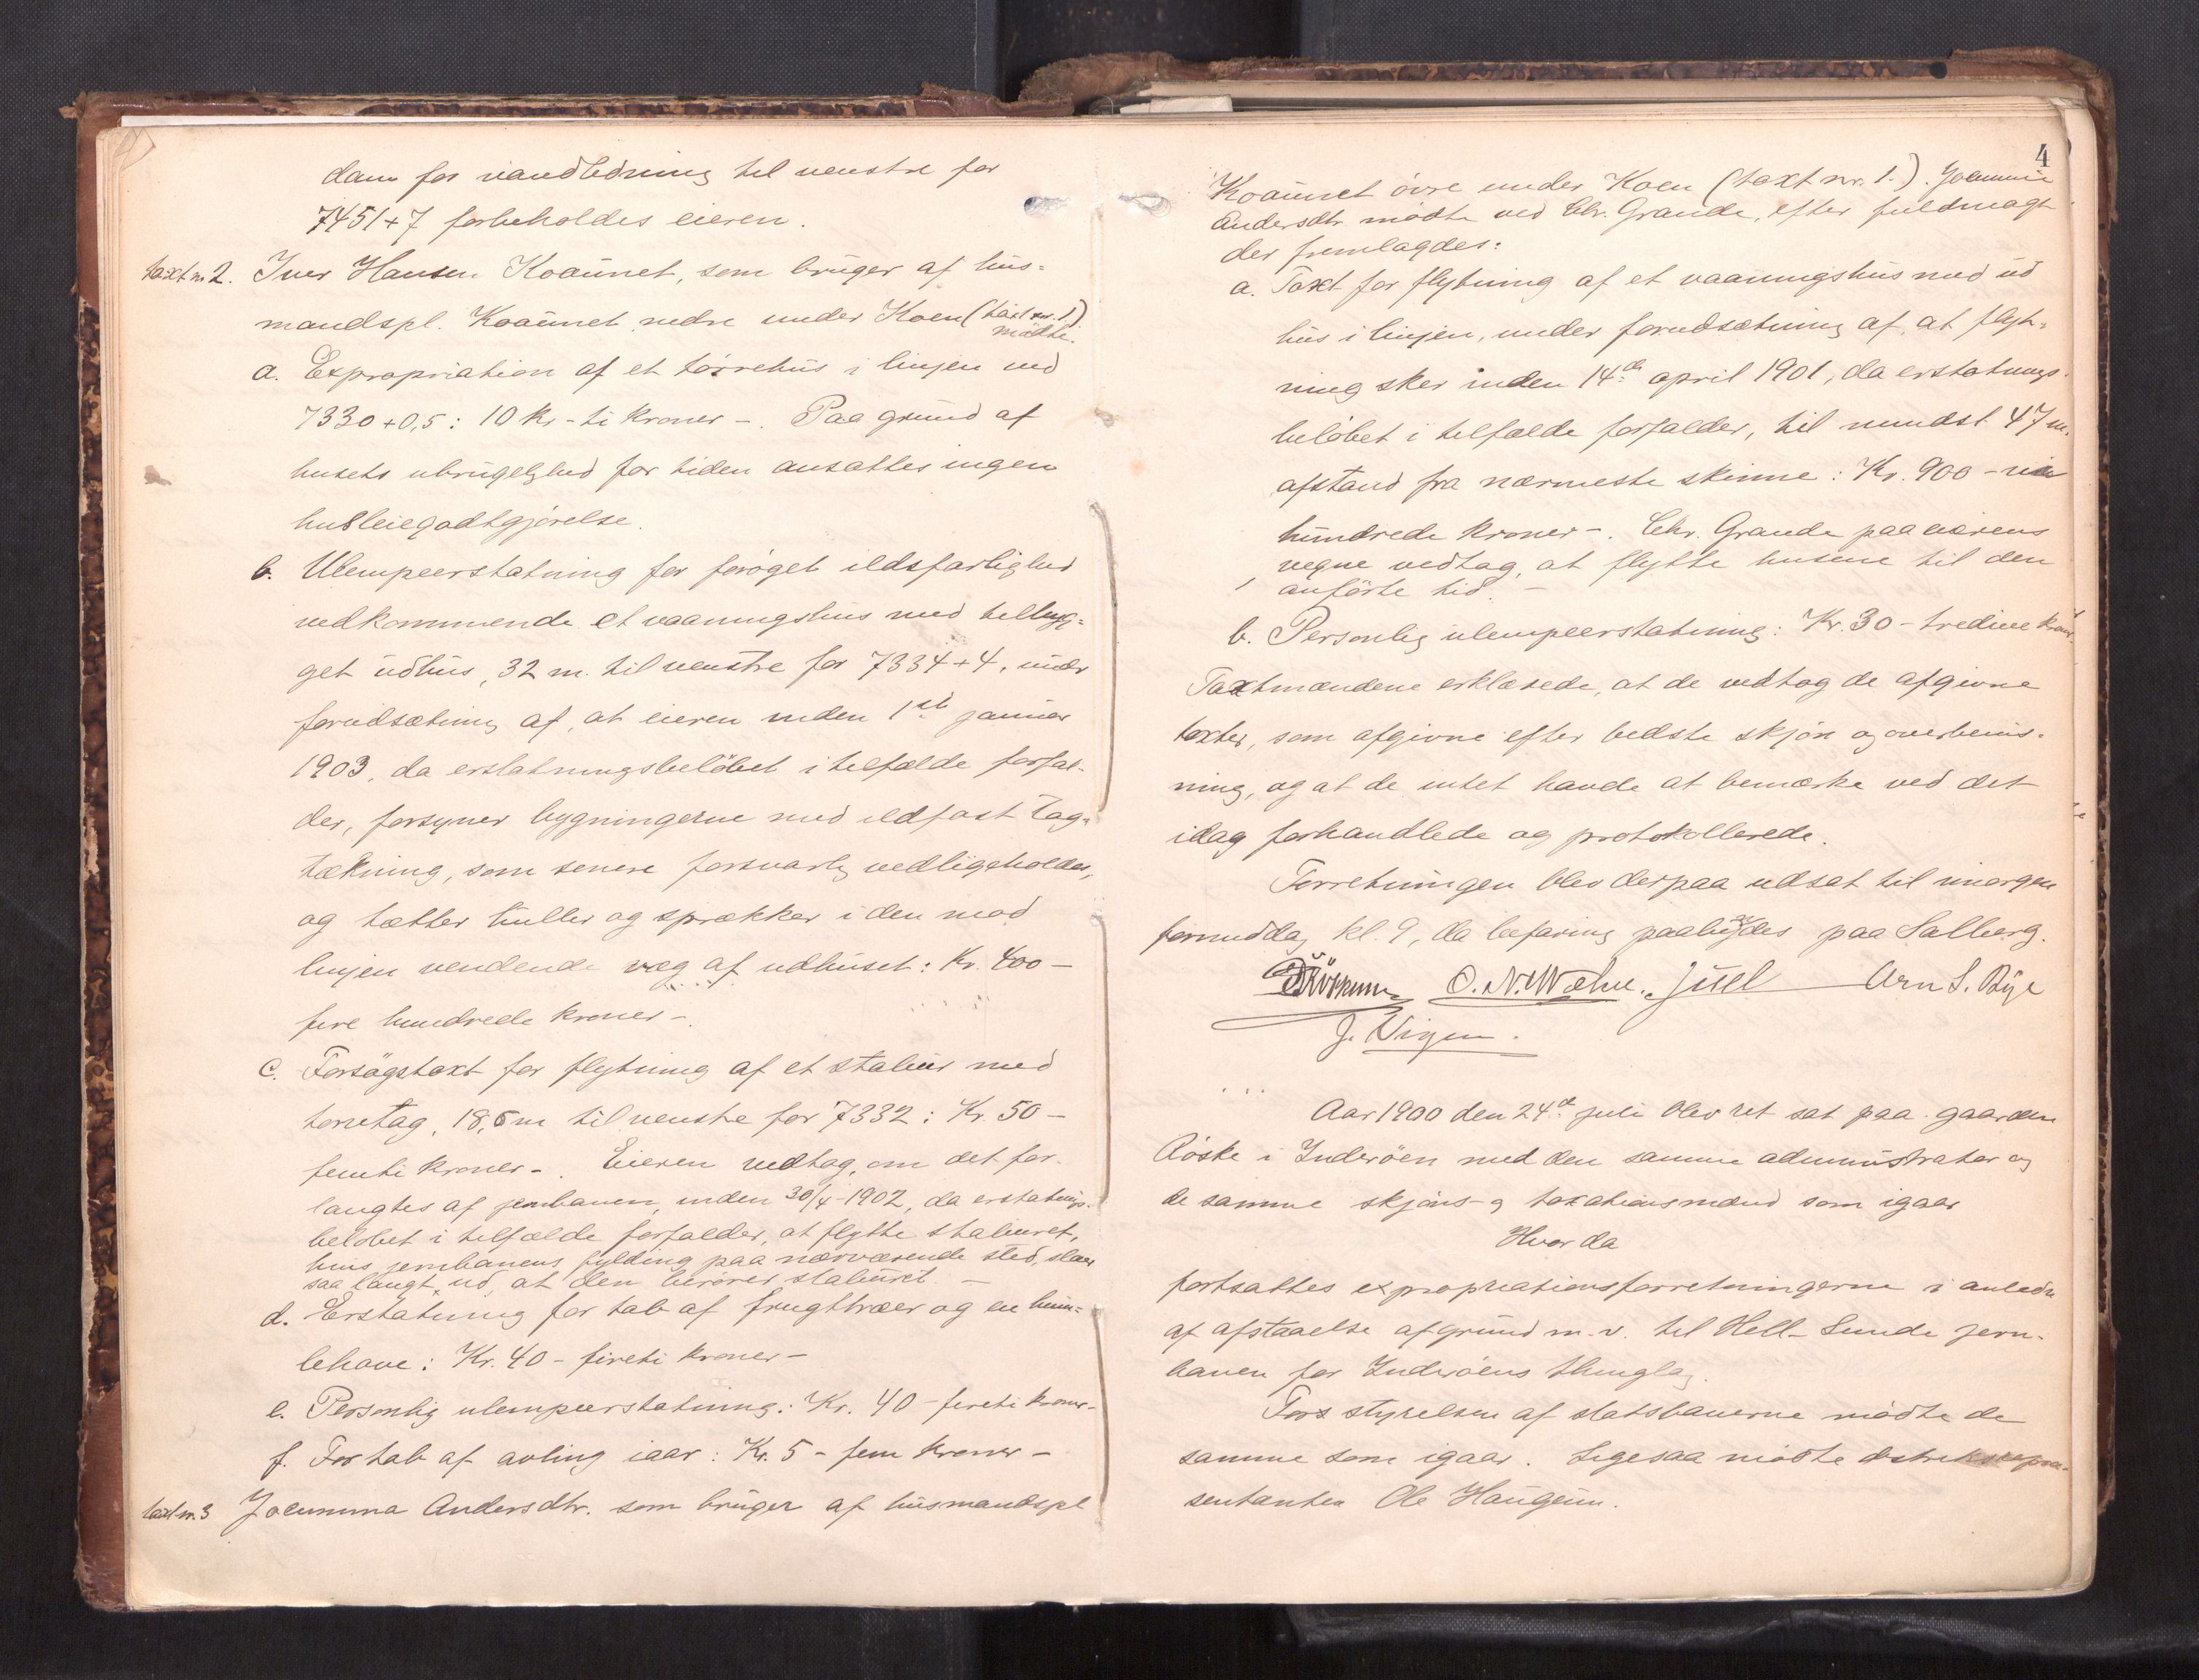 dam for vandledning til venstre for
7451+7 forbeholdes eieren.
taxt nr. 2. Iver Hansen Koaunet, som bruger af hus-
mandspl. Koaunet nedre under Koen (taxt nr. 1)
mødte.
a. Expropriation af et tørrehus i linjen ved
7330+0,5: 10 kr - ti kroner -. Paa grund af
husets ubrugelighed for tiden ansattes ingen
husleiegodtgjørelse.
b. Ulempeerstatning for forøget ildsfarlighed
vedkommende et vaaningshus med tilbyg-
get udhus, 32 m. til venstre for 7334+4, under
forudsætning af, at eieren inden 1st januar
1903, da erstatningsbeløbet i tilfælde forfal-
der, forsyner bygningerne med ildfast tag-
tækning, som senere forsvarlig vedligeholdes,
og tætter huller og sprækker i den mod
linjen vendende væg af udhuset: Kr. 400 -
fire hundrede kroner -.
c. Forsøgstaxt for flytning af et stabur med
torvtag, 18,5 m til venstre for 7332: Kr. 50 -
femti kroner -. Eieren vedtog, om det for-
langtes af jernbanen, inden 30/4 - 1902, da erstatnings-
beløbet i tilfælde forfalder, at flytte staburet,
hvis jernbanens fylding paa nærværende sted slaar
saa langt ud, at den berører staburet. -
d. Erstatning for tab af frugttræer og en hum-
lehave: Kr. 40 - fireti kroner -
e. Personlig ulempeerstatning: Kr. 40 - fireti kroner -
f. For tab af avling iaar: Kr. 5 - fem kroner -
taxt nr. 3 Jocumina Andersdtr. som bruger af husmandspl
4
Koaunet øvre under Koen (taxt nr. 1.). Jocumina
Andersdtr. mødte ved Chr. Grande, efter fuldmagt
der fremlagdes:
a. Taxt for flytning af et vaaningshus med ud
hus i linjen, under forudsætning af, at flyt-
ning sker inden 14de april 1901, da erstatnings-
beløbet i tilfælde forfalder, til mindst 47 m.
afstand fra nærmeste skinne: Kr. 900 - ni
hundrede kroner -. Chr. Grande paa eierens
vegne vedtog, at flytte husene til den
anførte tid. -
b. Personlig ulempeerstatning: Kr. 30 - tredive kroner
Taxtmændene erklærede, at de vedtog de afgivne
taxter, som afgivne efter bedste skjøn og overbevis-
ning, og at de intet havde at bemærke ved det
idag forhandlede og protokollerede.
Forretningen blev derpaa udsat til imorgen
formiddag kl. 9, da befaring paabydes paa Salberg.
O. N. Wælne. Jüel Arn S. Bye
J. Vigen.
Aar 1900 den 24de juli blev ret sat paa gaarden
Røske i Inderøen med den samme administrator og
de samme skjøns- og taxationsmænd som igaar
Hvor da
fortsattes expropriationsforretningerne i anledn
af afstaaelse af grund m. v. til Hell-Sunde jern-
banen for Inderøens thinglag.
For styrelsen af statsbanerne mødte de
samme som igaar. Ligesaa mødte distriktsrepræ-
sentanten Ole Haugum.